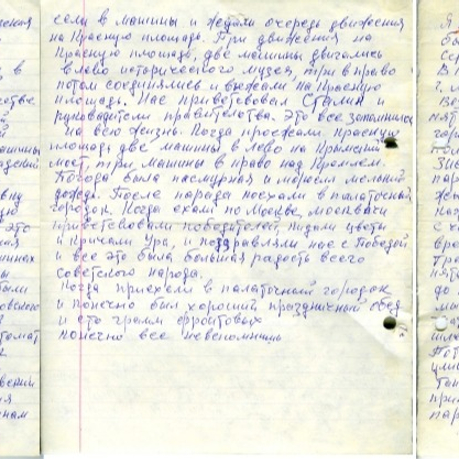 сели в машины и ждали очередь движения
на Красную площадь. При движения на
Красную площадь, две машины двигались
в лево исторического музея, три в право
потом соединялись и выжали на Красную
площадь. Нас приветсвовал Сталин и
руководители правительства. Это все запомнилось
на всю жизнь. Когда проехали, красную
площадь две машины в лево на Крымский
мост, три машины в право над Кремлем.
Погода была пасмурная и моросил мелкий
дождь. После парада поехали в палаточный
городок. Когда ехали по Москве, москвичи
приветсвовали победителей, кидали цветы
и кричали Ура, и поздравляли нас с Победой
и все это была большая радость всего
советского народа.
Когда приехали в палаточный городок
и конечно был хороший праздничный обед
и сто грамм фронтовых
конечно все невспомнишь